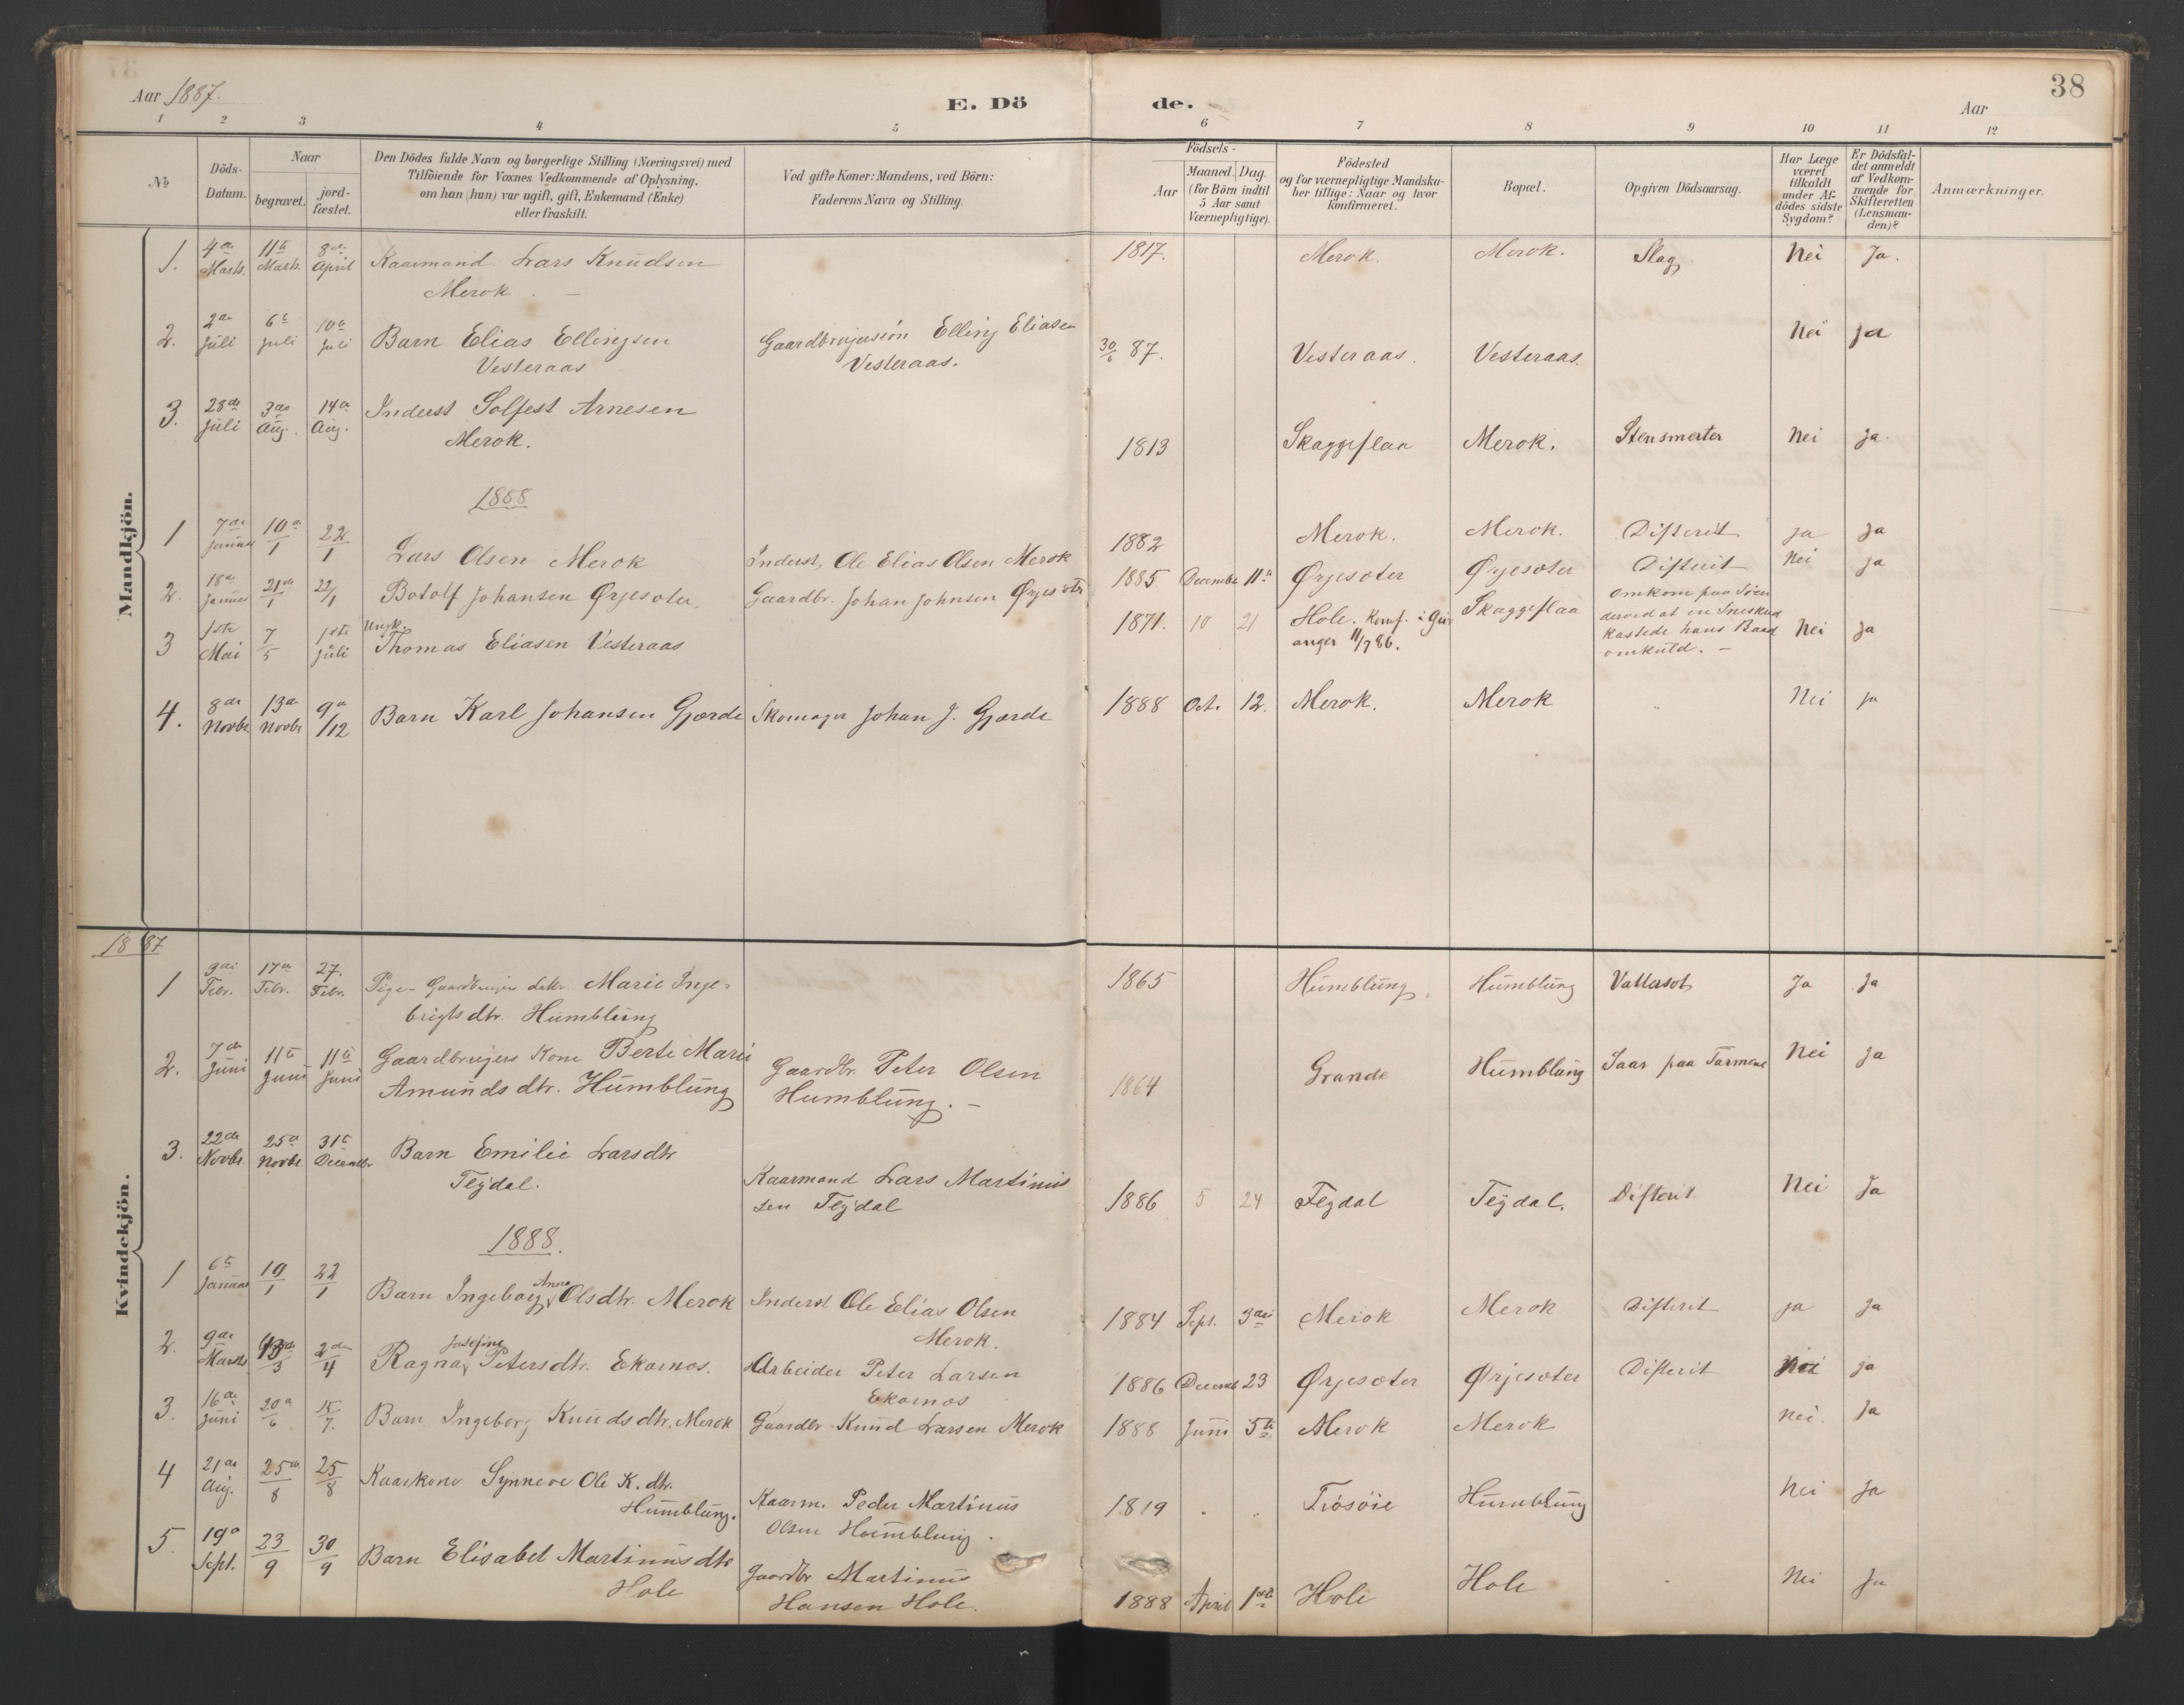 38
Aar 1887.
E. Dö de.
Aar
1 2 3 4 5 6 7 8 9 10 11 12
No
Döds-Datum.
Naar
begravet.
jord-fæstet.
Den Dödes fulde Navn og borgerlige Stilling (Næringsvei) med
Tilföiende for Voxnes Vedkommende af Oplysning,
om han (hun) var ugift, gift, Enkemand (Enke)
eller fraskilt.
Ved gifte Koner: Mandens, ved Börn:
Faderens Navn og Stilling.
Födsels-
Aar
Maaned.
Dag.
(for Börn indtil
5 Aar samt
Værnepligtige).
Födested
og for værnepligtige Mandska-
ber tillige: Naar og hvor
konfirmeret.
Bopæl.
Opgiven Dödsaarsag.
Har Læge
været
tilkaldt
under Af-
dödes sidste
Sygdom?
Er Dödsfal-
det anmeldt
af Vedkom-
mende for
Skifteretten
(Lensman-
den)?
Anmærkninger.
Mandkjön.
1. 4de Marts. 11te Marts. 8de April Kaarmand Lars Knudsen 1817. Merok. Merok. Slag Nei Ja.
Merok.
2. 2de Juli 6te Juli 10de Juli Barn Elias Ellingsen Gaardbrugersøn Elling Eliasen 30/6 87. Vesteraas. Vesteraas. Nei ja
Vesteraas Vesteraas.
3. 28de Juli 3die Aug. 14de Aug. Inderst Solfest Arnesen 1813 Skaggeflaa Merok. Stensmerter Nei ja.
Merok.
1888
1 7de Januar 10de/1 22/1 Lars Olsen Merok Inderst, Ole Elias Olsen Merok 1882 Merok. Merok. Difterit ja ja
2. 18de Januar 21de/1 22/1 Botolf Johansen Ørjesæter. Gaardbr. Johan Johnsen Ørjesæter 1885 December 11te Ørjesæter Ørjesæter Difterit Nei ja
3 1ste Mai 7/5 1ste Juli Ungk. Thomas Eliasen Vesteraas 1871. 10 21 Hole. Konf. i Gei- Skaggeflaa omkom paa Søen Nei ja
anger 11/7 86. derved at en Sneskred
kastede hans Baad
omkuld. –
4. 8de Novbr 13de Novbr 9de/12 Barn Karl Johansen Gjørde Skomager Johan J. Gjørde 1888 Oct. 12. Merok. Merok Nei ja
1887
Kvindekjön.
1 3die Febr. 17de Febr. 27. Febr. Pige – Gaardbrugers datter Marie Inge- 1865 Humblung. Humblung Vattersot Ja Ja
brigtsdtr. Humblung
2. 7de Juni 11te Juni 11te Juni Gaardbrugers Kone Berte Marie Gaardbr. Peter Olsen 1864 Grande Humblung Saar paa Tarmene Nei Ja
Amundsdtr. Humblung Humblung. –
3. 22de Novbr. 25de Novbr 31te Decembr Barn Emilie Larsdtr Kaarmand Lars Martinus 1886 5 24 Flydal Flydal. Difterit. Nei Ja
Flydal. sen Flydal
1888.
1 6te Januar 10/1 22/1 Barn Ingeborg Anna Olsdtr. Merok Inderst Ole Elias Olsen 1884 Sept. 3die Merok Merok Difterit ja ja
Merok.
2. 9de Marts 13de/3 2den/4 Ragna Josefine Petersdtr. Ekornes. Arbeider Peter Larsen 1886 Decemb 23 Ørjesæter Ørjesæter Difterit Nei ja
Ekornes
3. 16de Juni 20de/6 15/7. Barn Ingeborg Knudsdtr. Merok Gaardbr. Knud Larsen Merok 1888 Juni 5te Merok Merok nei. Ja
4 21de Aug. 25de/8 25/8 Kaarkone Synneve Ole K. dtr. Kaarm. Peder Martinus 1819 Humblung Nei ja
Humblung. Olsen Humblung.
5. 19de Sept. 23/9 30/9 Barn Elisabet Martinusdtr Gaardbr Martinus 1888 April 1ste Hole Hole Nei Ja
Hole Hansen Hole.